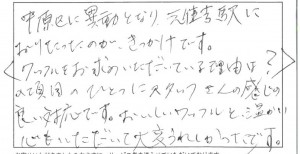 中原区に異動となり、元住吉駅に
おりたったのが、きっかけです。
ワッフルをお求めいただいている理由は?
の項目のひとつにスタッフさんの感じの
良い対応です。おいしいワッフルと、温かい
心もいただいて大変うれしかったです。